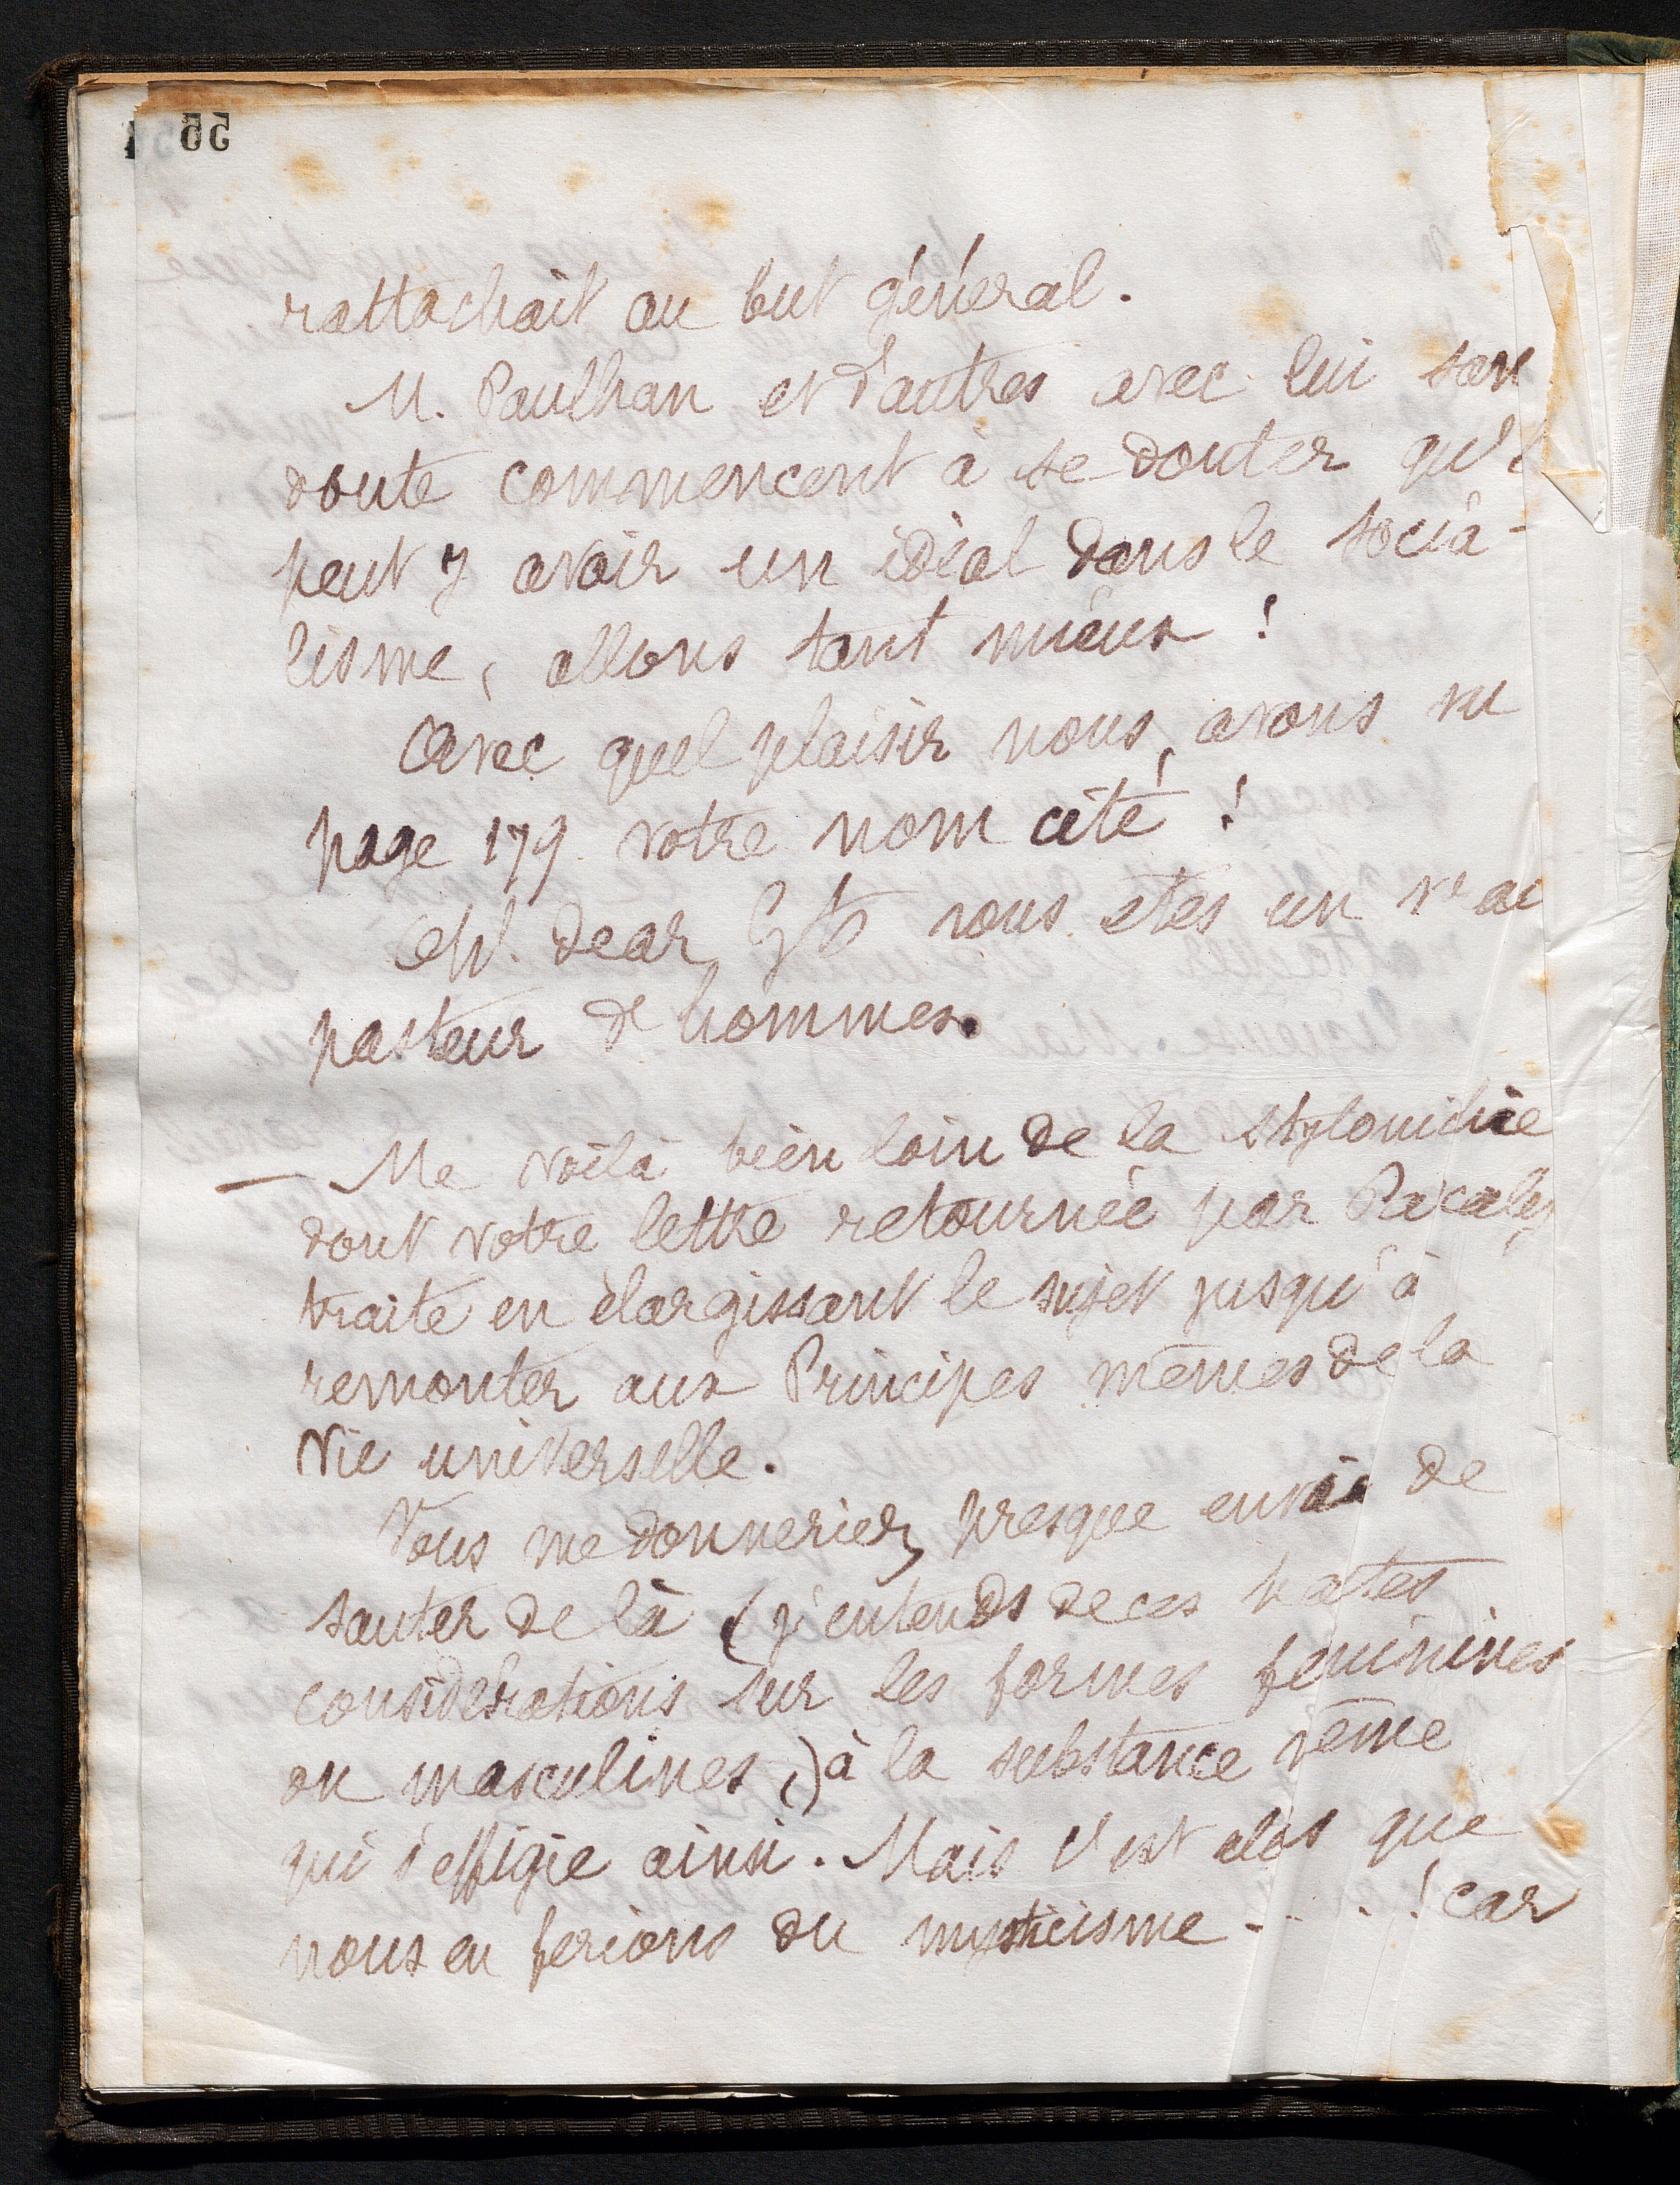 55
rattachait au but général.
M. Paulhan et d'autres avec lui san
doute commencent à se douter qu'i
peut y avoir un idéal dans le socia-
lisme, allons tant mieux !
Avec quel plaisir nous avons vu
page 179 votre nom cité !
Oh. dear Gtb vous etes un vrai
pasteur d'hommes.
— Me voilà bien loin de la
dont votre lettre retournée par Pascaly
traite en élargissant le sujet jusqu'à
remonter aux Principes mêmes de la
Vie universelle.
Vous me donneriez presque envie de
sauter de là (j'entends de ces vastes
considérations sur les formes féminines
ou masculines,) à la substance même
qui s'effigie ainsi. Mais c'est alors que
nous en ferions du mysticisme - . . . ! car